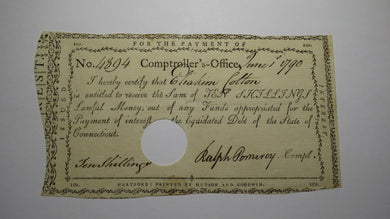 10s. FOR THE PAYMENT OF 10s.
No. 4894 Comptroller's-Office, June 1 1790
I hereby certify that Eliakim Cotton
is entitled to receive the Sum of TEN SHILLINGS
Lawful Money, out of any Funds appropriated for the
Payment of interest on the liquidated Debt of the State of
Connecticut.
Ten Shillings Ralph Pomeroy Compt.
10s. HARTFORD: PRINTED BY HUDSON AND GOODWIN. 10s.
ISSUED